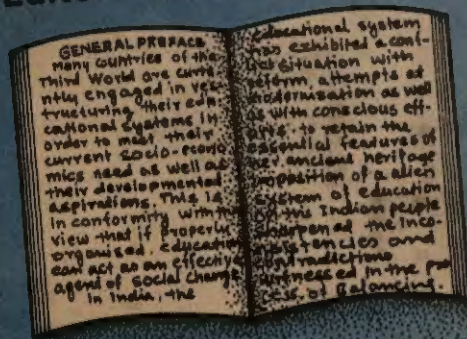 GENERAL PREFACE
Many countries of the
Third World are curre
ntly engaged in res-
trueturing their edu-
cational systems in
order to meet their
current socio-econo
mics need as well as
their developmental
aspirations. This is
in conformity with the
view that if properly
organised, education
can act as an effective
agend of social change
in India, the
Educational system
has exhibited a conf-
lict situation with
reform, attempts at
modernisation as well
as with conscious eff-
orts, to retain the
essential features of
her ancient heritage
position of a alien
system of education
on this Indian people
sharpened the inco-
sistencies and
contradictions
witnessed in the pro
cess. of Balancing.